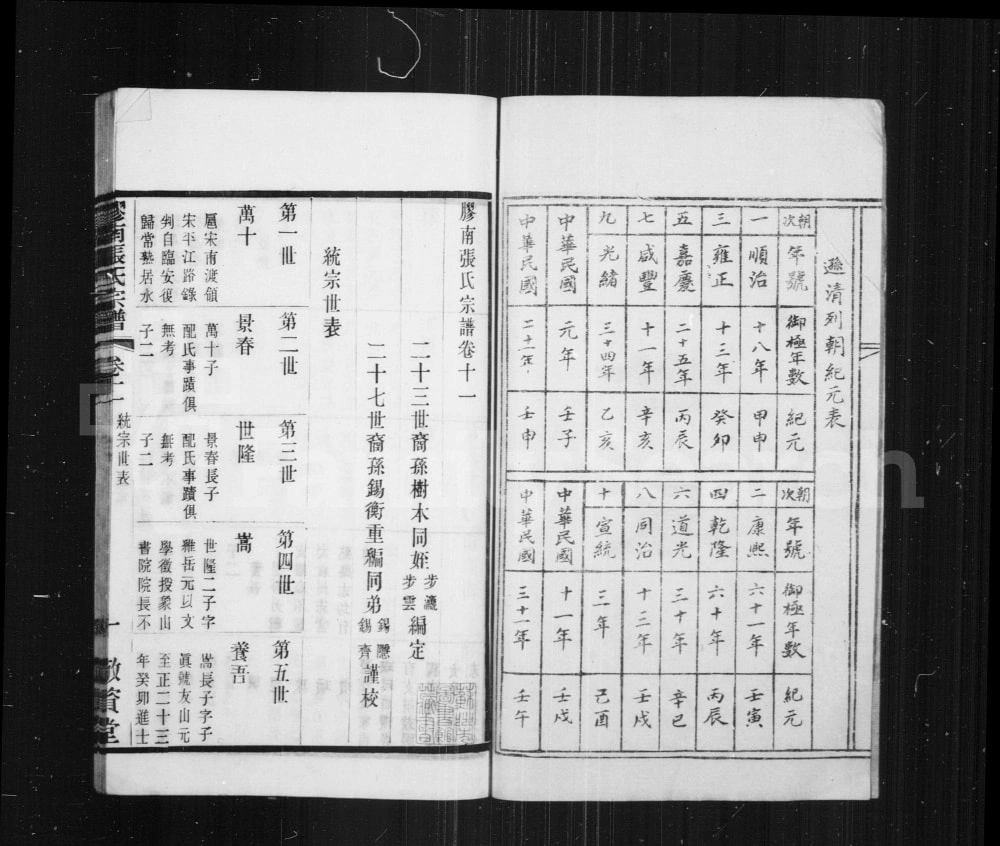 遜清列朝紀元表
朝次 年號 御極年數 紀元 朝次 年號 御極年數 紀元
一 順治 十八年 甲申 二 康熙 六十一年 壬寅
三 雍正 十三年 癸卯 四 乾隆 六十年 丙辰
五 嘉慶 二十五年 丙辰 六 道光 三十年 辛巳
七 咸豐 十一年 辛亥 八 同治 十三年 壬戌
九 光緒 三十四年 乙亥 十 宣統 三年 己酉
中華民國 元年 壬子 中華民國 十一年 壬戌
中華民國 二十一年 壬申 中華民國 三十一年 壬午
膠南張氏宗譜卷十一
二十三世裔孫樹本同姪步瀛步雲編定
二十七世裔孫錫衡重編同弟錫齊謹校
統宗世表
第一世 第二世 第三世 第四世 第五世
萬十 景春 世隆 嵩 養吾
扈宋南渡領 萬十子 景春長子 世隆二子字 嵩長子字子
宋平江路錄 配氏事蹟俱 配氏事蹟俱 維岳元以文 眞號友山元
判自臨安復 無考 無考 學徵授象山 至正二十三
歸常熟居水 子二 子二 書院院長不 年癸卯進士
膠南張氏宗譜 卷十一 統宗世表 一 敬資堂